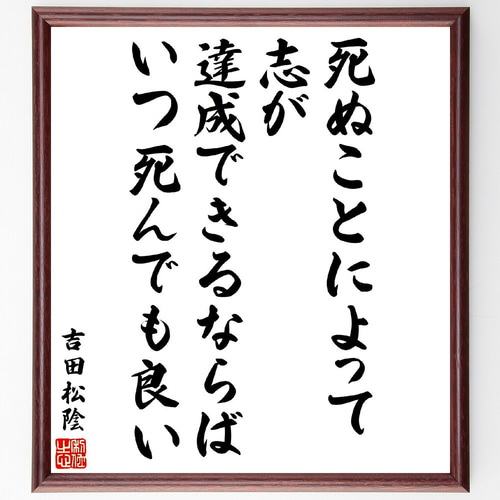 死ぬことによって
志が
達成できるならば
いつ死んでも良い
吉田松陰